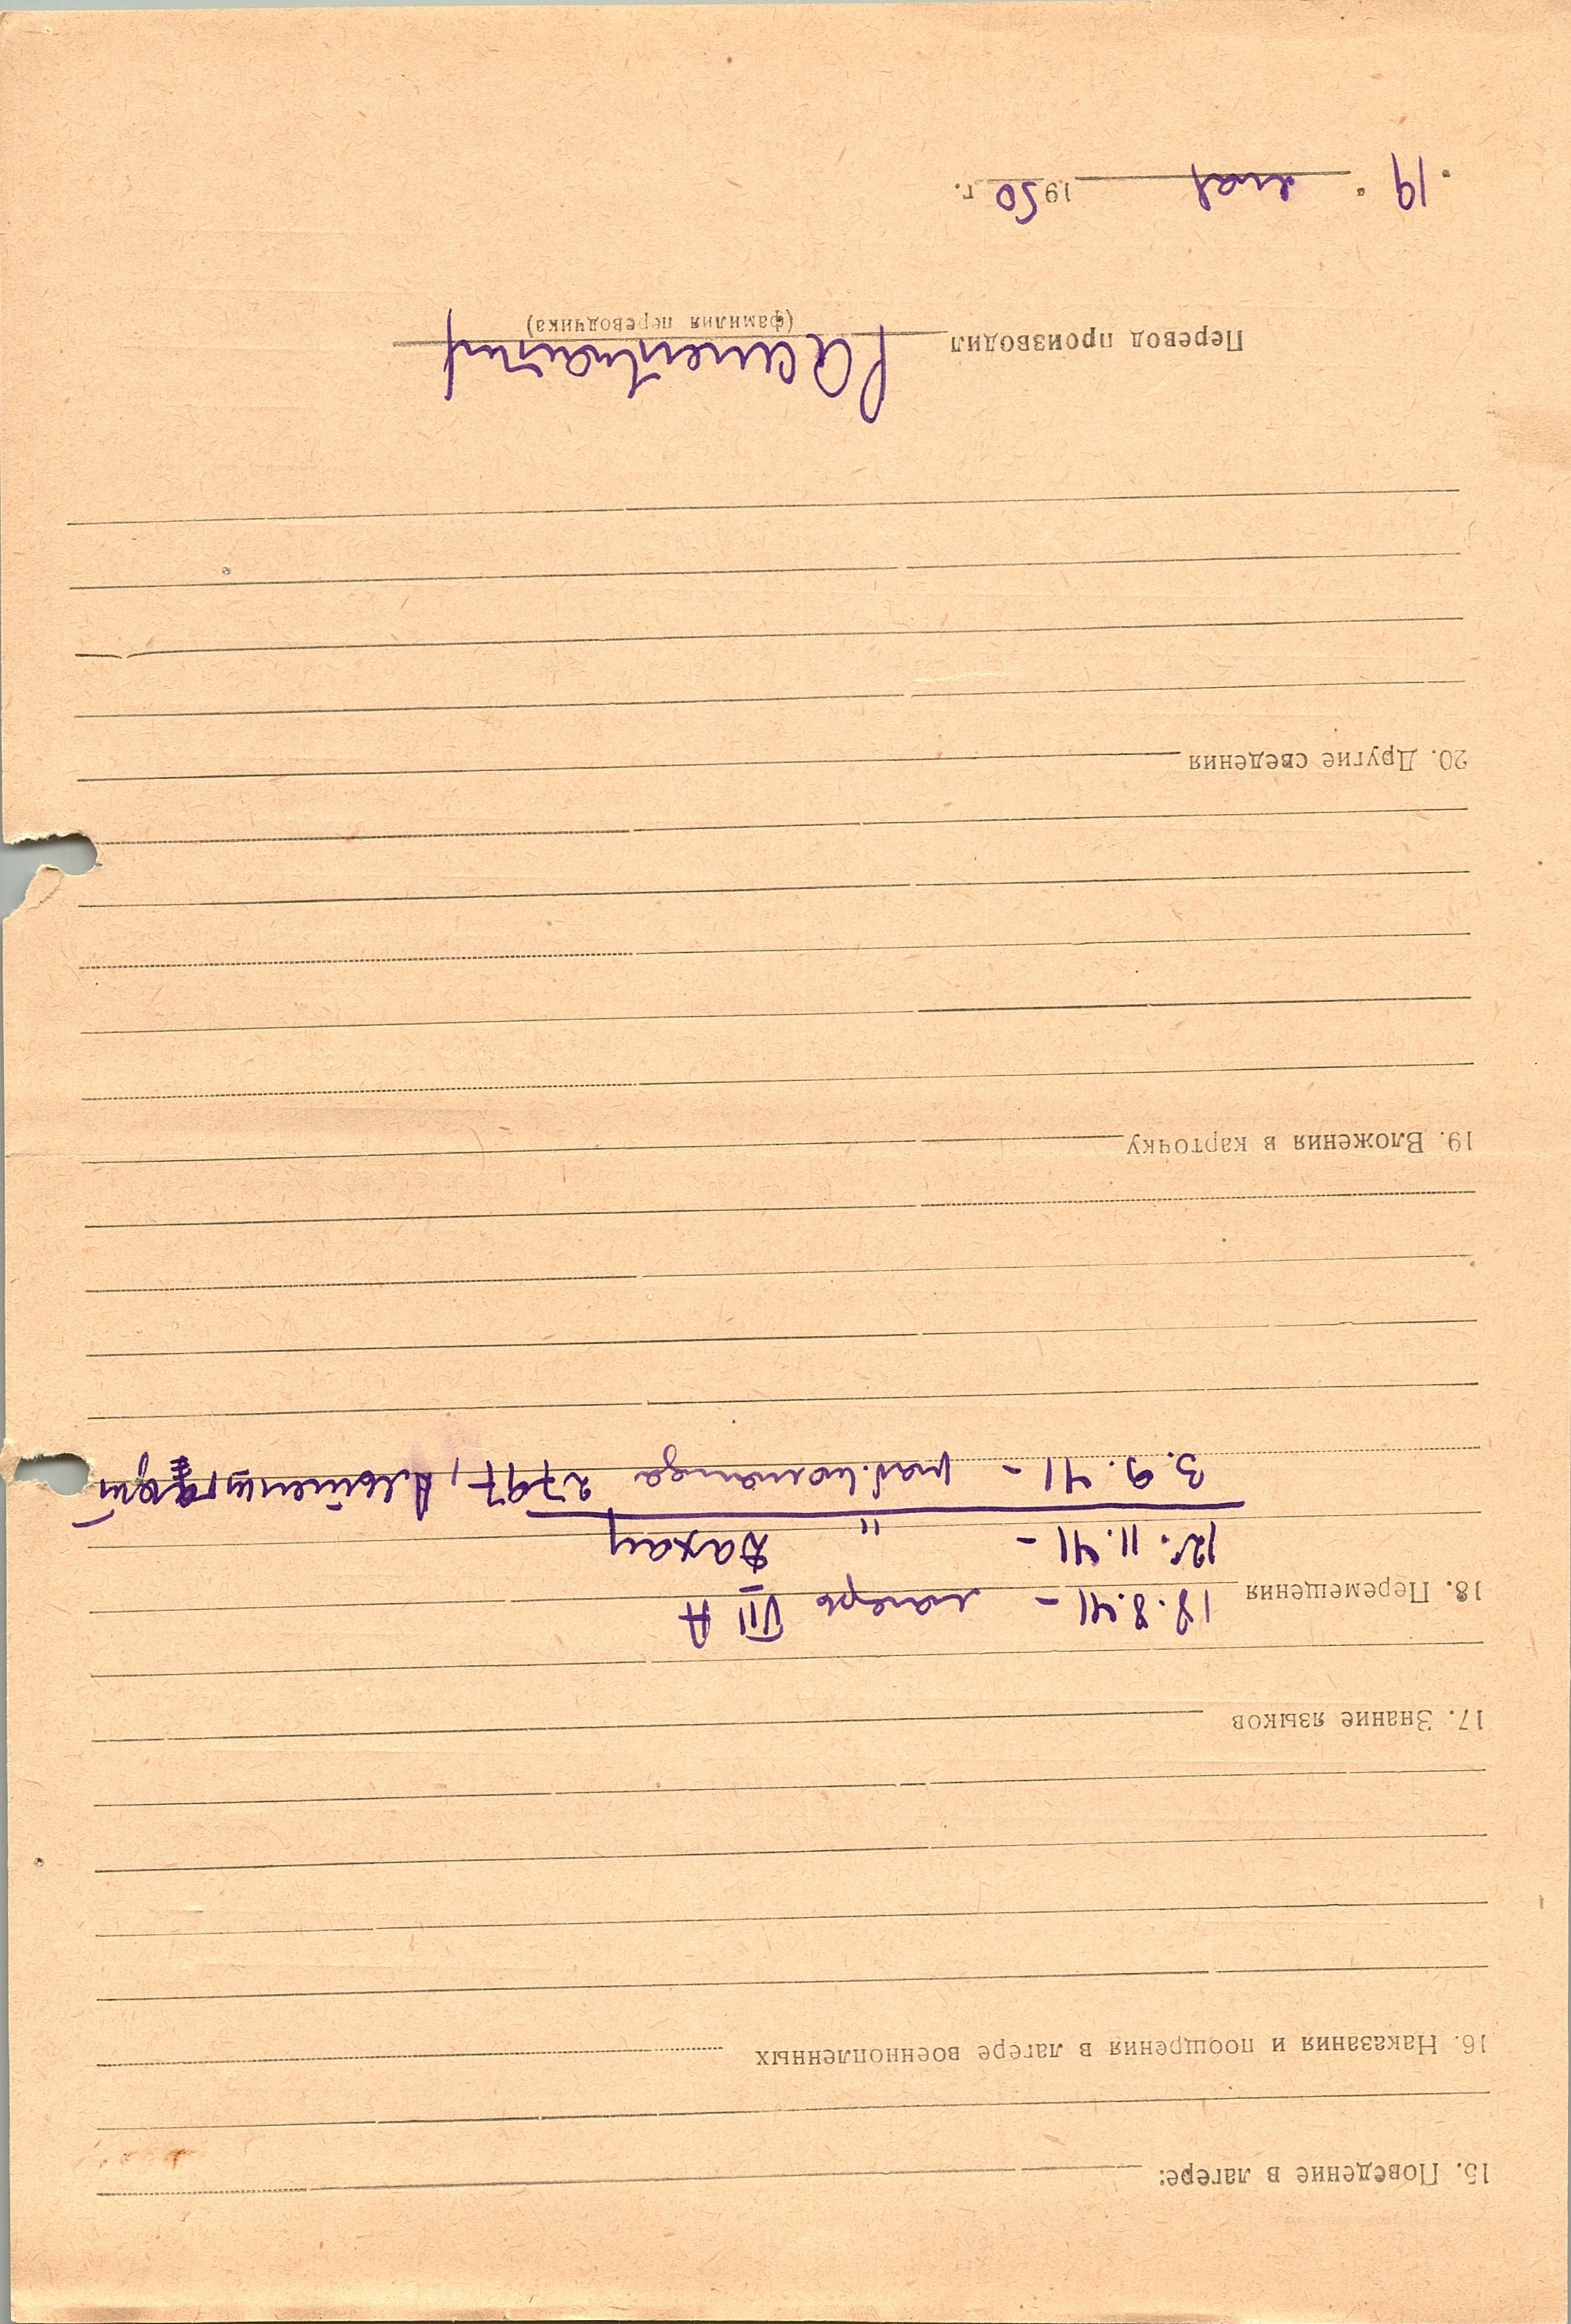 15. Поведение в лагере:
16. Наказания и поощрения в лагере военнопленных
17. Знание языков
18. Перемещения 18.8.41 – лагерь VII A
12.11.41 – " Дахау
3.9.41 – раб. команда 2797,
19. Вложения в карточку
20. Другие сведения
Перевод производил
(фамилия переводчика)
„19“ мая 1950 г.